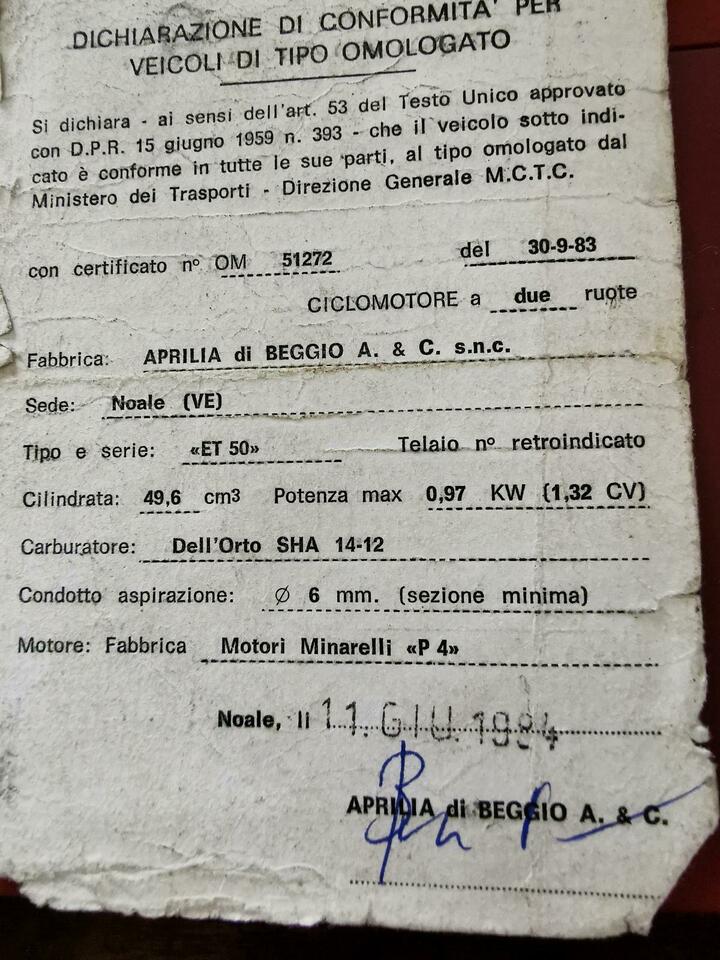 DICHIARAZIONE DI CONFORMITA' PER
VEICOLI DI TIPO OMOLOGATO
Si dichiara - ai sensi dell'art. 53 del Testo Unico approvato
con D.P.R. 15 giugno 1959 n. 393 - che il veicolo sotto indi-
cato è conforme in tutte le sue parti, al tipo omologato dal
Ministero dei Trasporti - Direzione Generale M.C.T.C.
con certificato n° OM 51272 del 30-9-83
CICLOMOTORE a due ruote
Fabbrica: APRILIA di BEGGIO A. & C. s.n.c.
Sede: Noale (VE)
Tipo e serie: «ET 50» Telaio n° retroindicato
Cilindrata: 49,6 cm3 Potenza max 0,97 KW (1,32 CV)
Carburatore: Dell'Orto SHA 14-12
Condotto aspirazione: Ø 6 mm. (sezione minima)
Motore: Fabbrica Motori Minarelli «P 4»
Noale, li 11. GIU. 1984
APRILIA di BEGGIO A. & C.